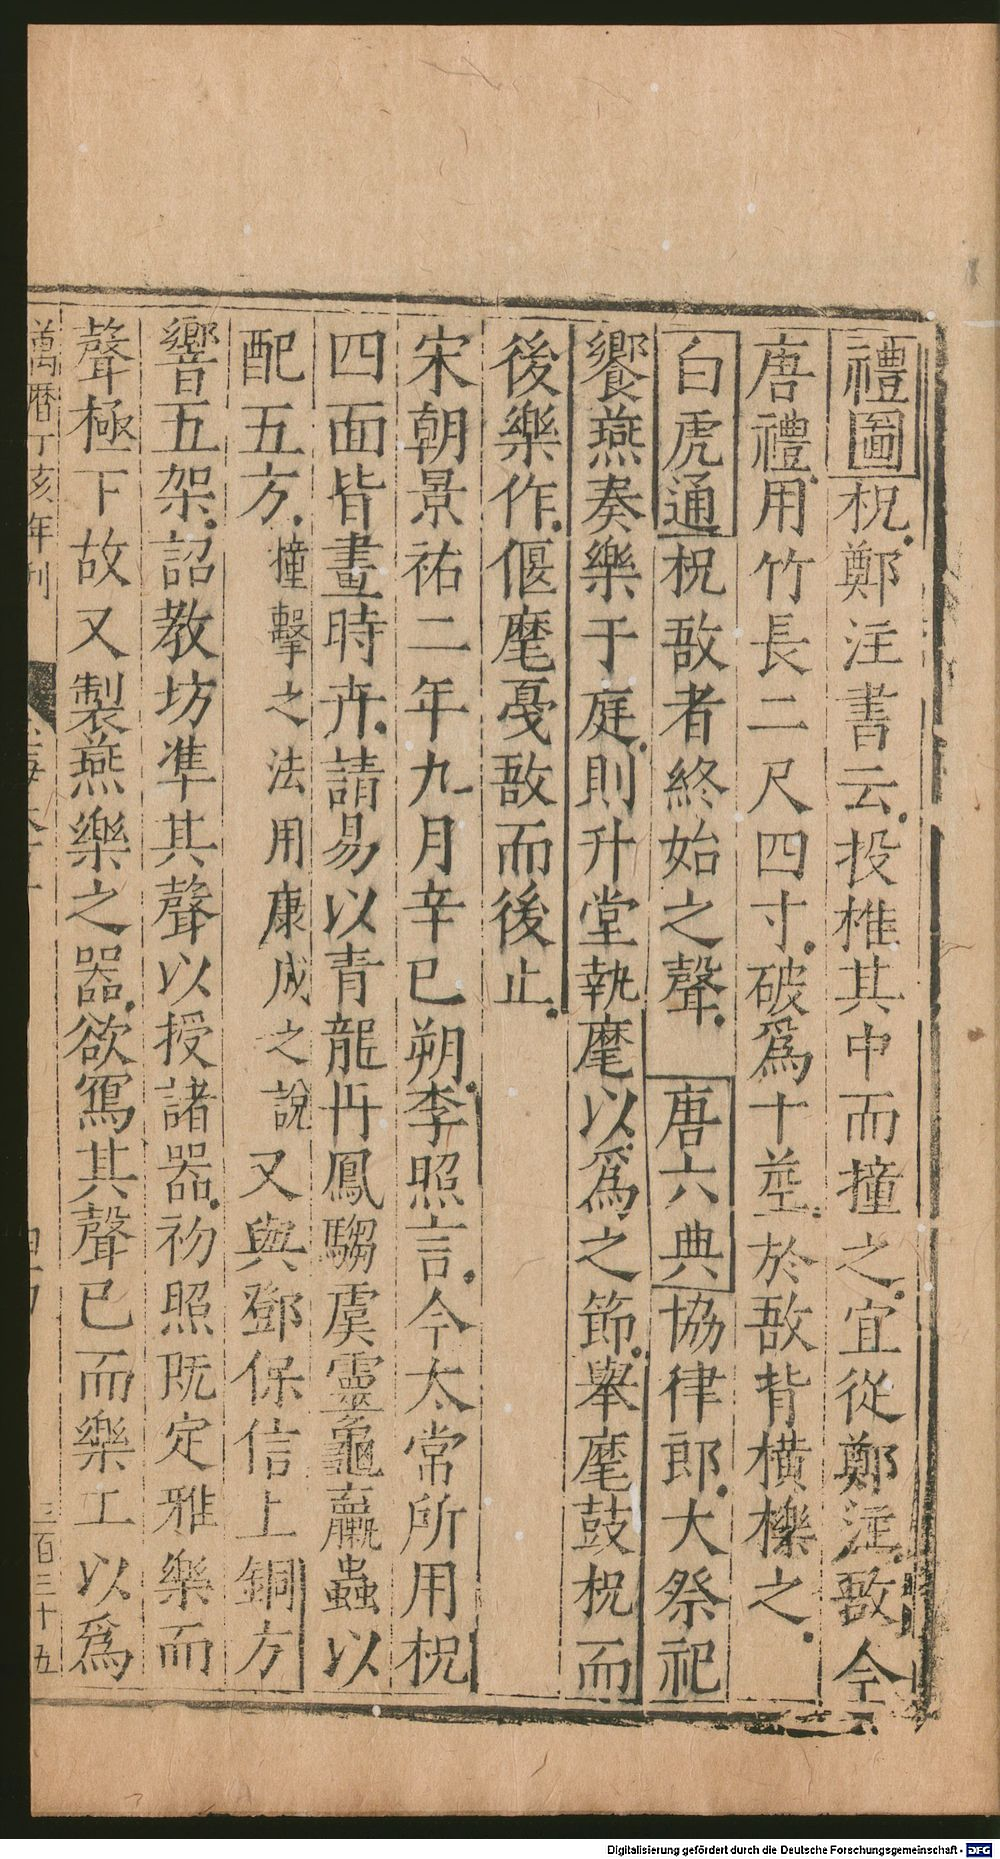 禮圖柷鄭注書云投椎其中而撞之宜從鄭注敔今
唐禮用竹長二尺四寸破爲十莖於敔背橫櫟之
白虎通柷敔者終始之聲 唐六典協律郎大祭祀
饗燕奏樂于庭則升堂執麾以爲之節舉麾鼓柷而
後樂作偃麾戞敔而後止
宋朝景祐二年九月辛巳朔李照言今太常所用柷
四面皆畫時卉請易以青龍丹鳳騶虞靈龜蠃蟲以
配五方撞擊之法用康成之說又與鄧保信上銅方
響五架詔教坊準其聲以授諸器初照既定雅樂而
聲極下故又製燕樂之器欲寫其聲已而樂工以爲
萬曆丁亥年刊
三百三十五
Digitalisierung gefördert durch die Deutsche Forschungsgemeinschaft - DFG